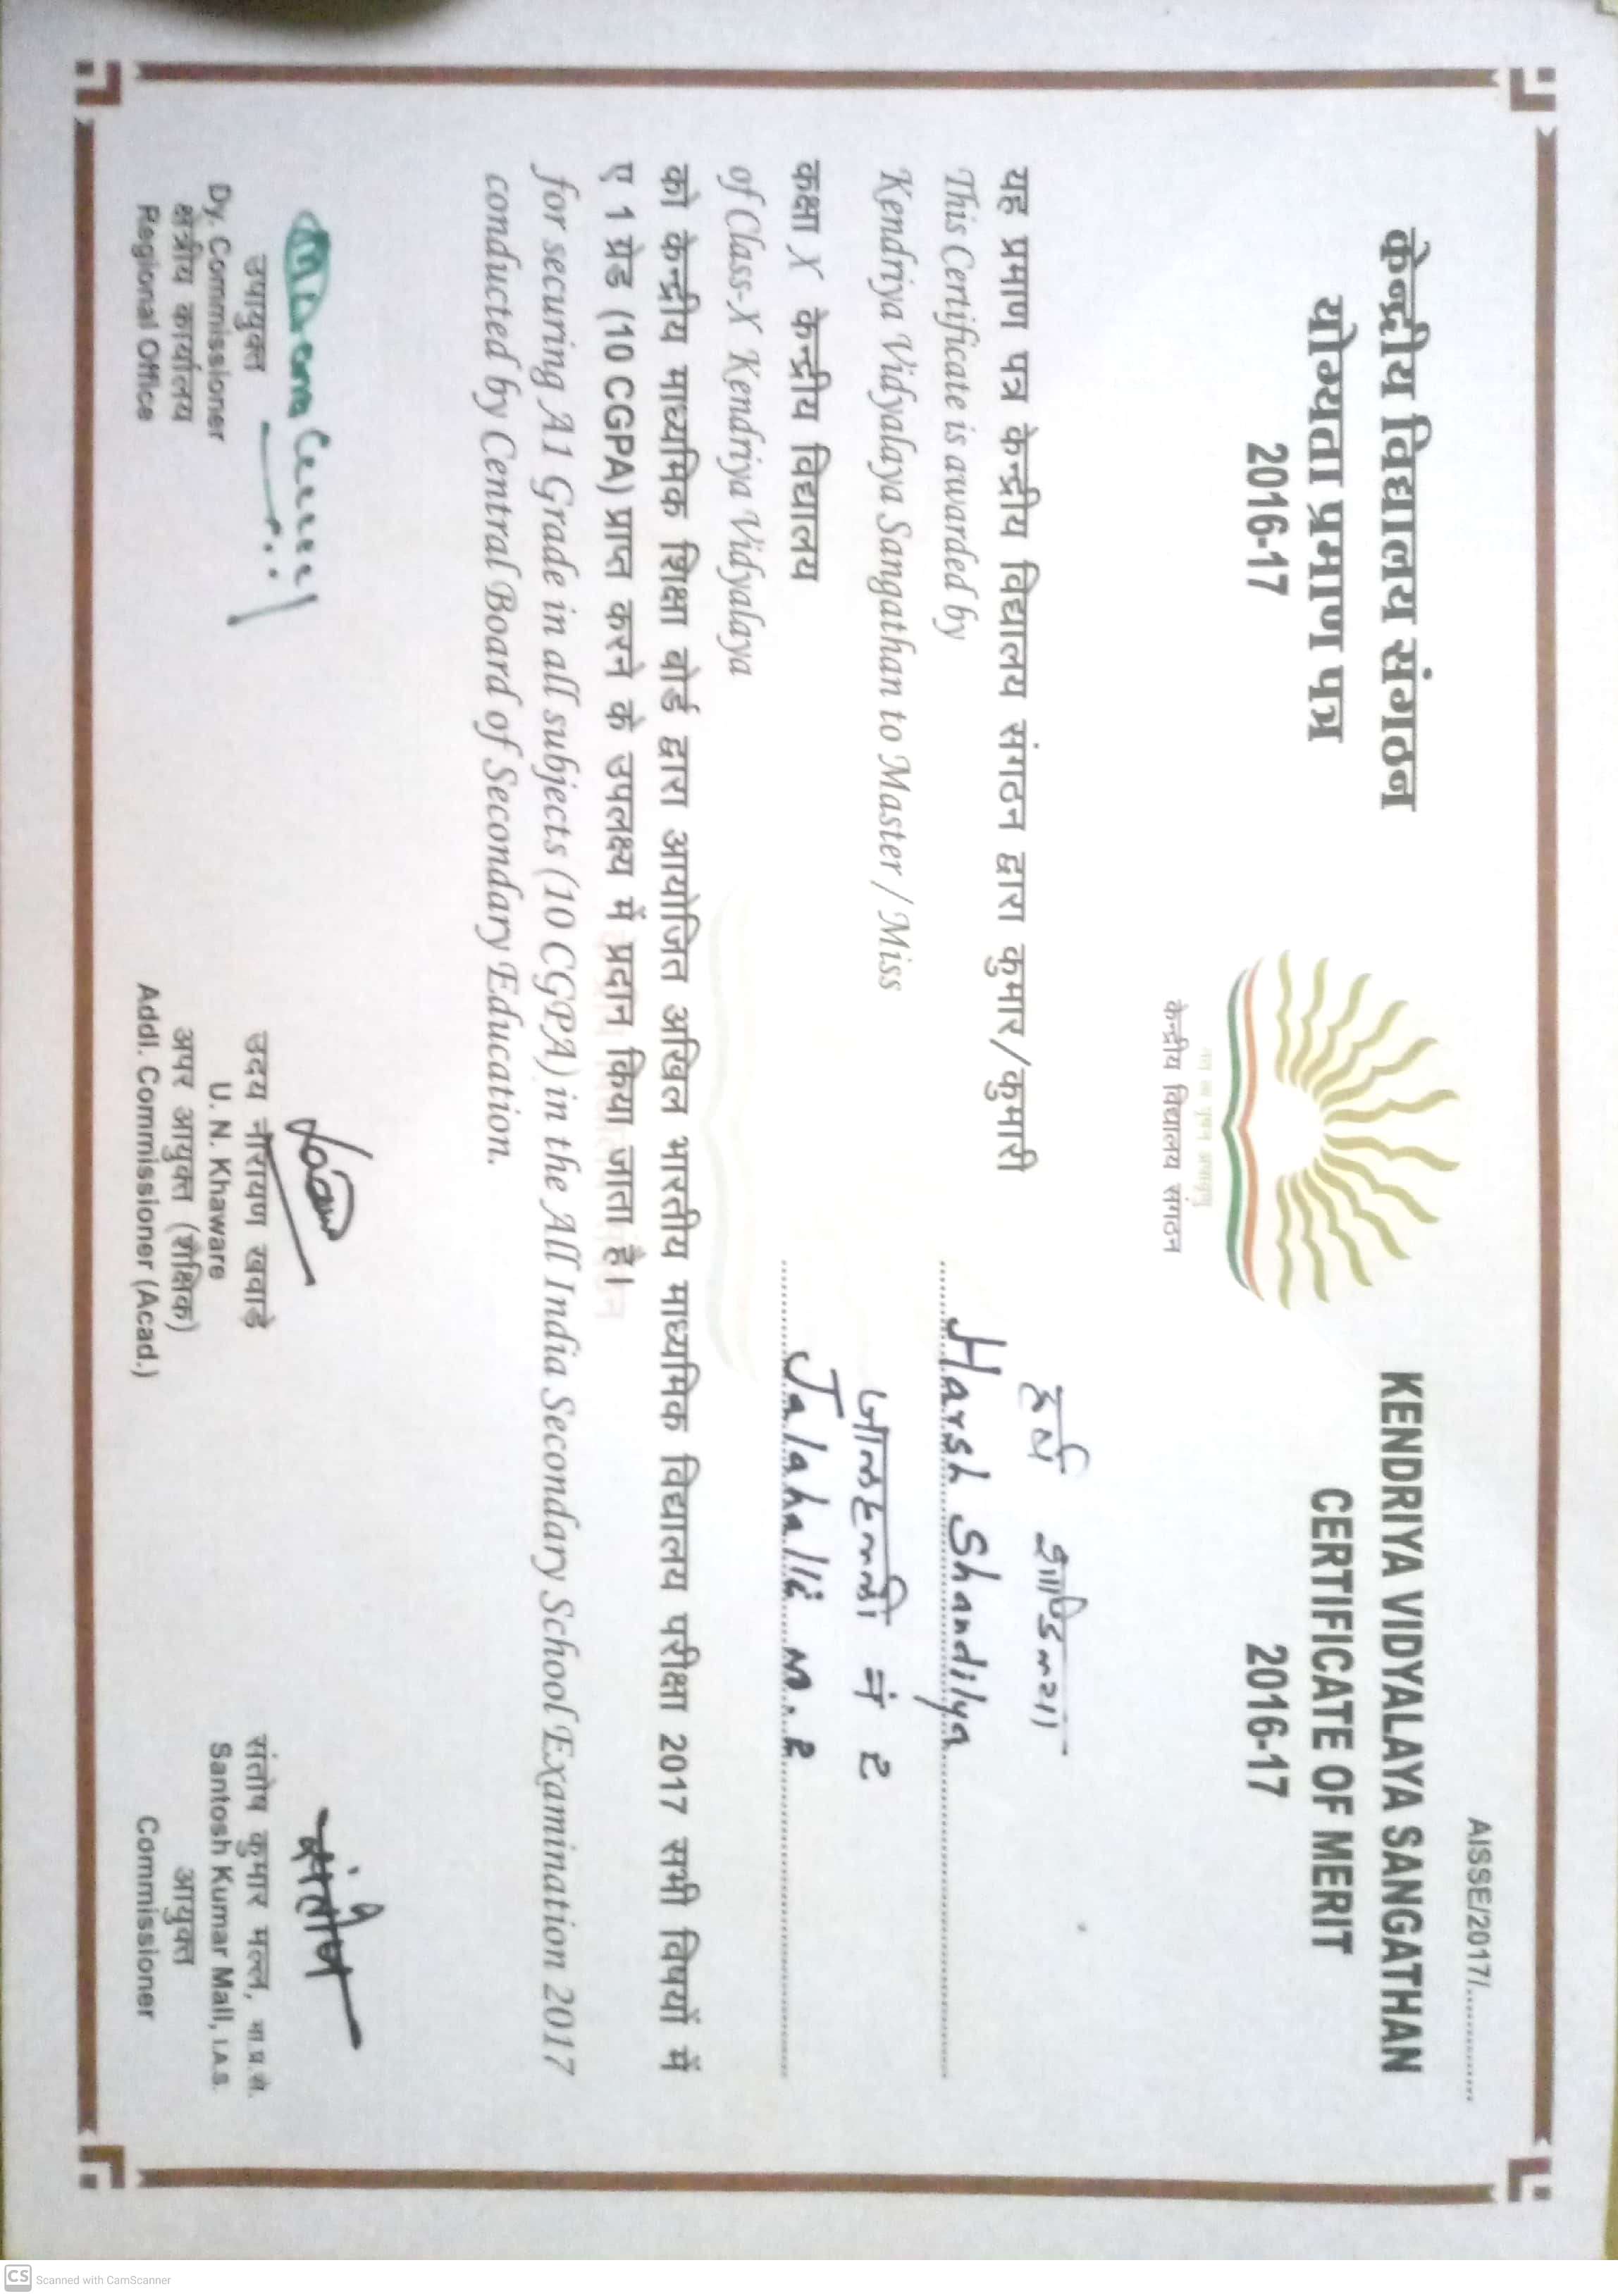 AISSE/2017/..............
केन्द्रीय विद्यालय संगठन
योग्यता प्रमाण पत्र
2016-17
KENDRIYA VIDYALAYA SANGATHAN
CERTIFICATE OF MERIT
2016-17
केन्द्रीय विद्यालय संगठन
यह प्रमाण पत्र केन्द्रीय विद्यालय संगठन द्वारा कुमार/कुमारी
हर्ष शाण्डिल्या
This Certificate is awarded by
Harsh Shandilya
Kendriya Vidyalaya Sangathan to Master / Miss
जालहल्ली नं 2
कक्षा X केन्द्रीय विद्यालय
Jalahalli no. 2
of Class-X Kendriya Vidyalaya
को केन्द्रीय माध्यमिक शिक्षा बोर्ड द्वारा आयोजित अखिल भारतीय माध्यमिक विद्यालय परीक्षा 2017 सभी विषयों में
ए 1 ग्रेड (10 CGPA) प्राप्त करने के उपलक्ष्य में प्रदान किया जाता है।
for securing A1 Grade in all subjects (10 CGPA) in the All India Secondary School Examination 2017
conducted by Central Board of Secondary Education.
उपायुक्त
Dy. Commissioner
क्षेत्रीय कार्यालय
Regional Office
उदय नारायण खवाड़े
U. N. Khaware
अपर आयुक्त (शैक्षिक)
Addl. Commissioner (Acad.)
संतोष
संतोष कुमार मल्ल, भा.प्र.से.
Santosh Kumar Mall, I.A.S.
आयुक्त
Commissioner
CS Scanned with CamScanner